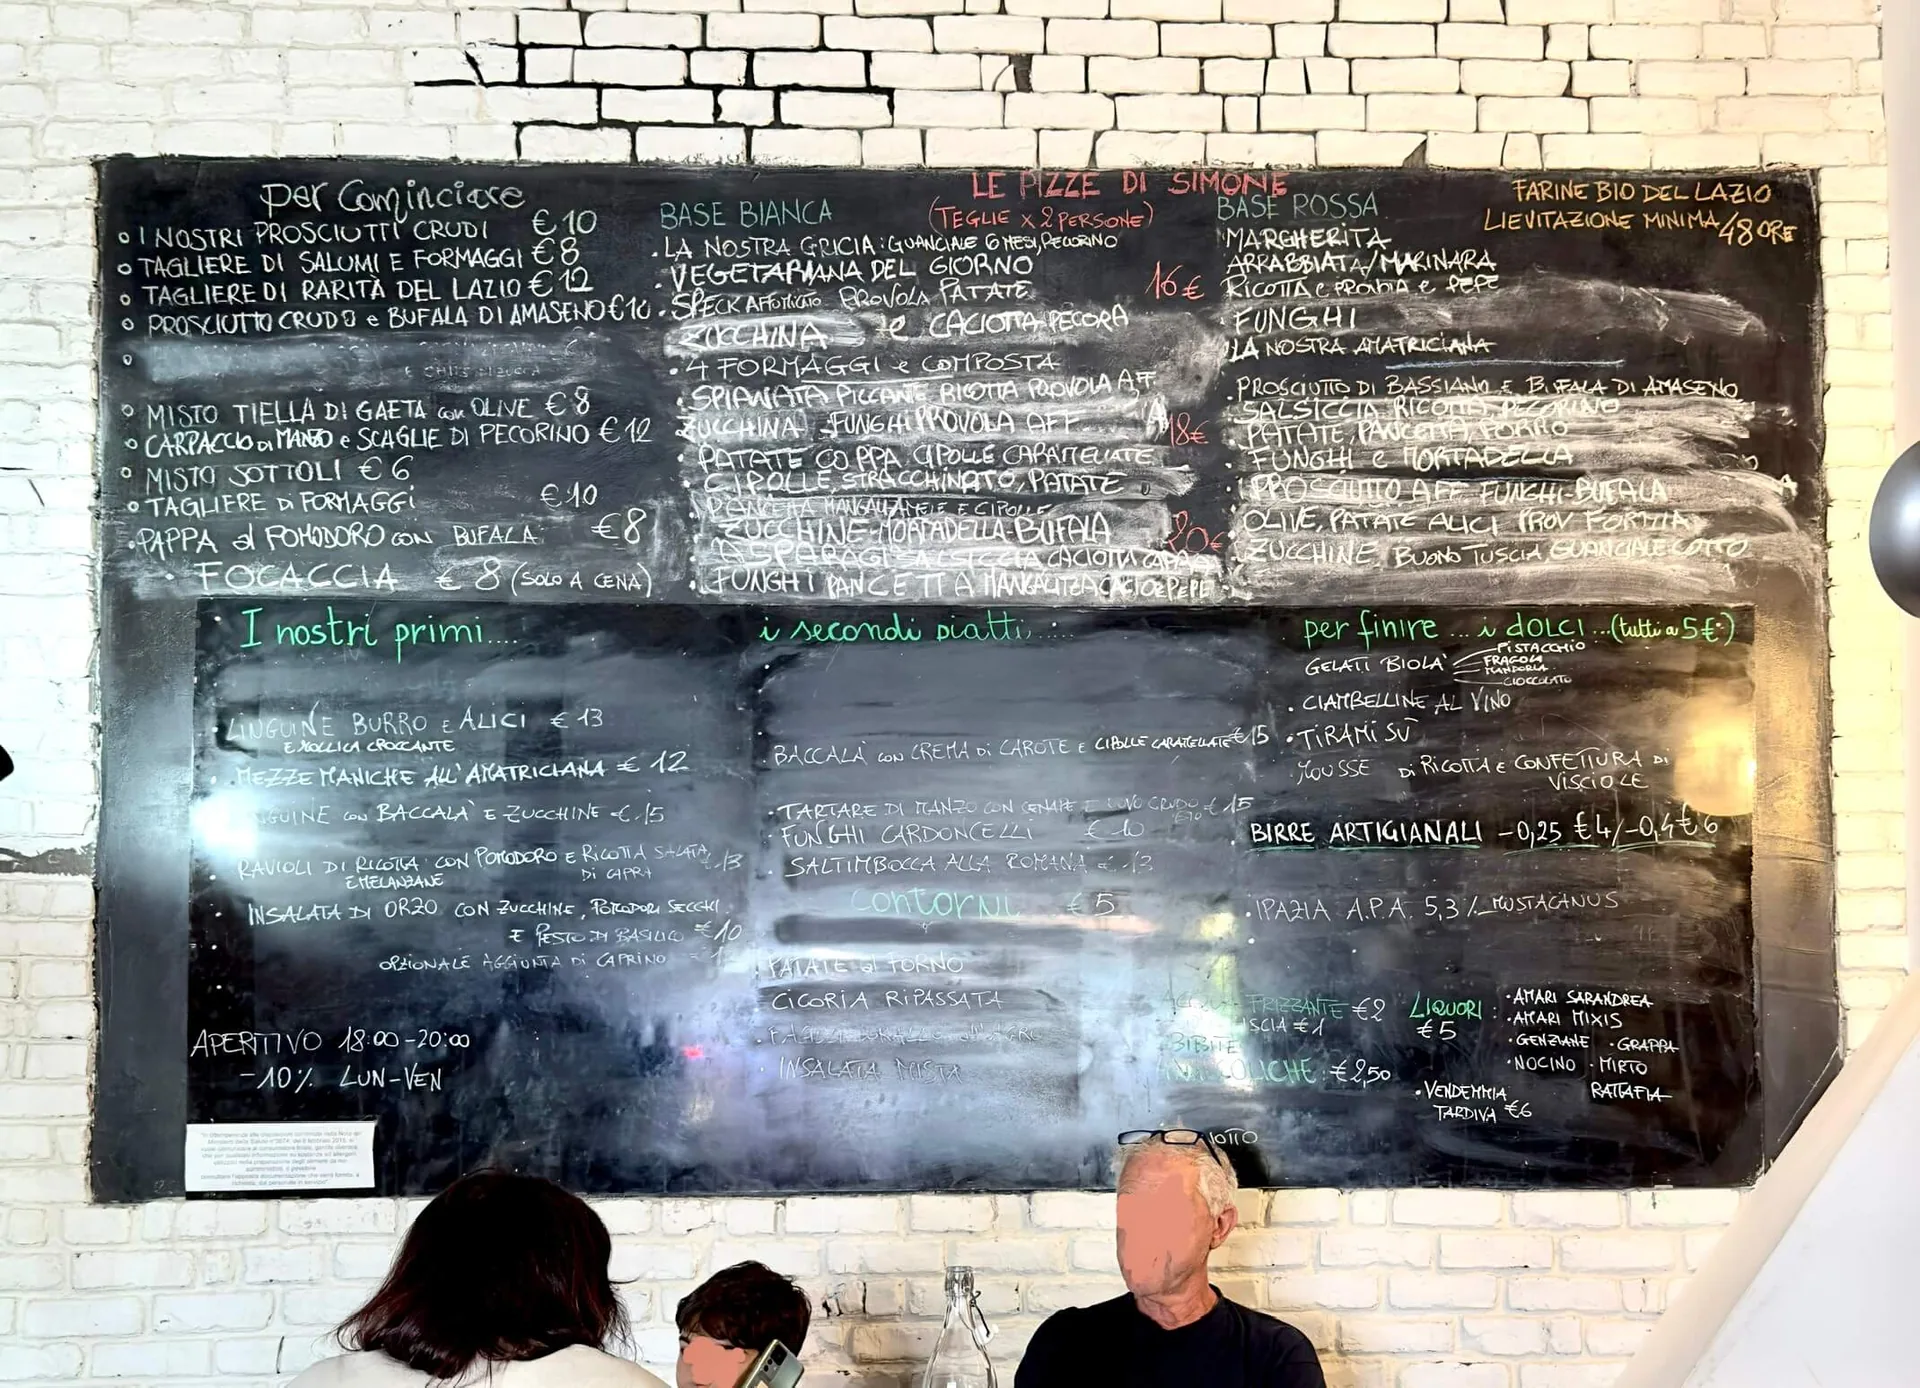 per Cominciare
I NOSTRI PROSCIUTTI CRUDI €10
TAGLIERE DI SALUMI E FORMAGGI €8
TAGLIERE DI RARITÀ DEL LAZIO €12
PROSCIUTTO CRUDO e BUFALA DI AMASENO €10
MISTO TIELLA DI GAETA con OLIVE €8
CARPACCIO di MANZO e SCAGLIE DI PECORINO €12
MISTO SOTTOLI €6
TAGLIERE Di FORMAGGi €10
PAPPA al POMODORO con BUFALA €8
FOCACCIA €8 (SOLO A CENA)
LE PIZZE DI SIMONE
(TEGLIE x 2 PERSONE)
BASE BIANCA
LA NOSTRA GRICIA: GUANCIALE 6 MESI, PECORINO
VEGETARIANA DEL GIORNO
SPECK AFFUMICATO PROVOLA PATATE
16€
ZUCCHINA e CACIOTTA PECORA
4 FORMAGGI e COMPOSTA
SPIANATA PICCANTE RICOTTA PROVOLA AFF.
ZUCCHINA FUNGHI PROVOLA AFF....
18€
PATATE COPPA, CIPOLLE CARAMELLATE
CIPOLLE, STRACCHINATO, PATATE
PANCETTA MANGALITZA E CIPOLLE
ZUCCHINE-MORTADELLA-BUFALA
20€
ASPARAGI SALSICCIA CACIOTTA
FUNGHI PANCETTA MANGALITZA CACIO e PEPE
BASE ROSSA
MARGHERITA
ARRABBIATA/MARINARA
RICOTTA e e PEPE
FUNGHI
LA NOSTRA AMATRICIANA
PROSCIUTTO DI BASSIANO E BUFALA DI AMASENO
SALSICCIA RICOTTA, PECORINO
PATATE, PANCETTA, PORRO
FUNGHI e MORTADELLA
PROSCIUTTO AFF. FUNGHI-BUFALA
OLIVE, PATATE ALICI PROV
ZUCCHINE, BUONO TUSCIA, GUANCIALE COTTO
FARINE BIO DEL LAZIO
LIEVITAZIONE MINIMA 48 ORE
I nostri primi....
LINGUINE BURRO E ALICI €13
E MOLLICA CROCCANTE
MEZZE MANICHE ALL'AMATRICIANA €12
LINGUINE con BACCALA' E ZUCCHINE €15
RAVIOLI DI RICOTTA CON POMODORO E RICOTTA SALATA €13
E MELANZANE DI CAPRA
INSALATA DI ORZO CON ZUCCHINE, POMODORI SECCHI
E PESTO DI BASILICO €10
OPZIONALE AGGIUNTA DI CAPRINO
APERITIVO 18:00-20:00
-10% LUN-VEN
i secondi piatti......
BACCALA' con CREMA di CAROTE E CIPOLLE CARAMELLATE €15
TARTARE DI MANZO CON SENAPE E UOVO CRUDO €15
FUNGHI CARDONCELLI €10
SALTIMBOCCA ALLA ROMANA €13
contorni €5
PATATE al FORNO
CICORIA RIPASSATA
INSALATA MISTA
per finire ... i dOLCI ...(tutti a 5€)
GELATI BIOLA'
PISTACCHIO
FRAGOLA
MANDORLA
CIOCCOLATO
CIAMBELLINE AL VINO
TIRAMI SU
MOUSSE DI RICOTTA E CONFETTURA DI
VISCIOLE
BIRRE ARTIGIANALI -0,25 €4/-0,4 €6
IPAZIA A.P.A. 5,3% MUSTACANUS
FRIZZANTE €2
LISCIA €1
BIBITE
ANALCOLICHE: €2,50
LIQUORI:
€5
AMARI SARANDREA
AMARI MIXIS
GENZIANE · GRAPPA
NOCINO · MIRTO
RATAFIA
VENDEMMIA
TARDIVA €6